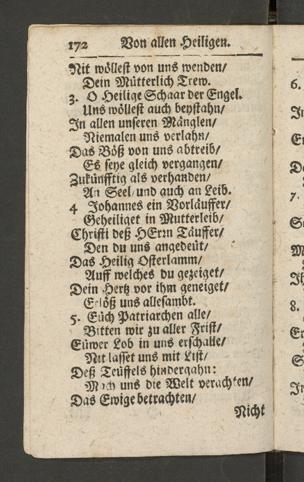 172 Von allen Heiligen.
Nit wöllest von uns wenden/
Dein Mütterlich Trew.
3. O Heilige Schaar der Engel.
Uns wöllest auch beystahn/
In allen unseren Mänglen/
Niemalen uns verlahn/
Das Böß von uns abtreib/
Es seye gleich vergangen/
Zukünfftig als verhanden/
An Seel und auch an Leib.
4 Johannes ein Vorläuffer/
Geheiliget in Mutterleib/
Christi deß HErrn Täuffer/
Den du uns angedeüt/
Das Heilig Osterlamm/
Auff welches du gezeiget/
Dein Hertz vor ihm geneiget/
Erlöß uns allesambt.
5. Eüch Patriarchen alle/
Bitten wir zu aller Frist/
Eüwer Lob in uns erschalle/
Nit lasset uns mit List/
Deß Teüffels hindergahn:
Mach uns die Welt verachten/
Das Ewige betrachten/
Nicht
6.
In
7.
8.